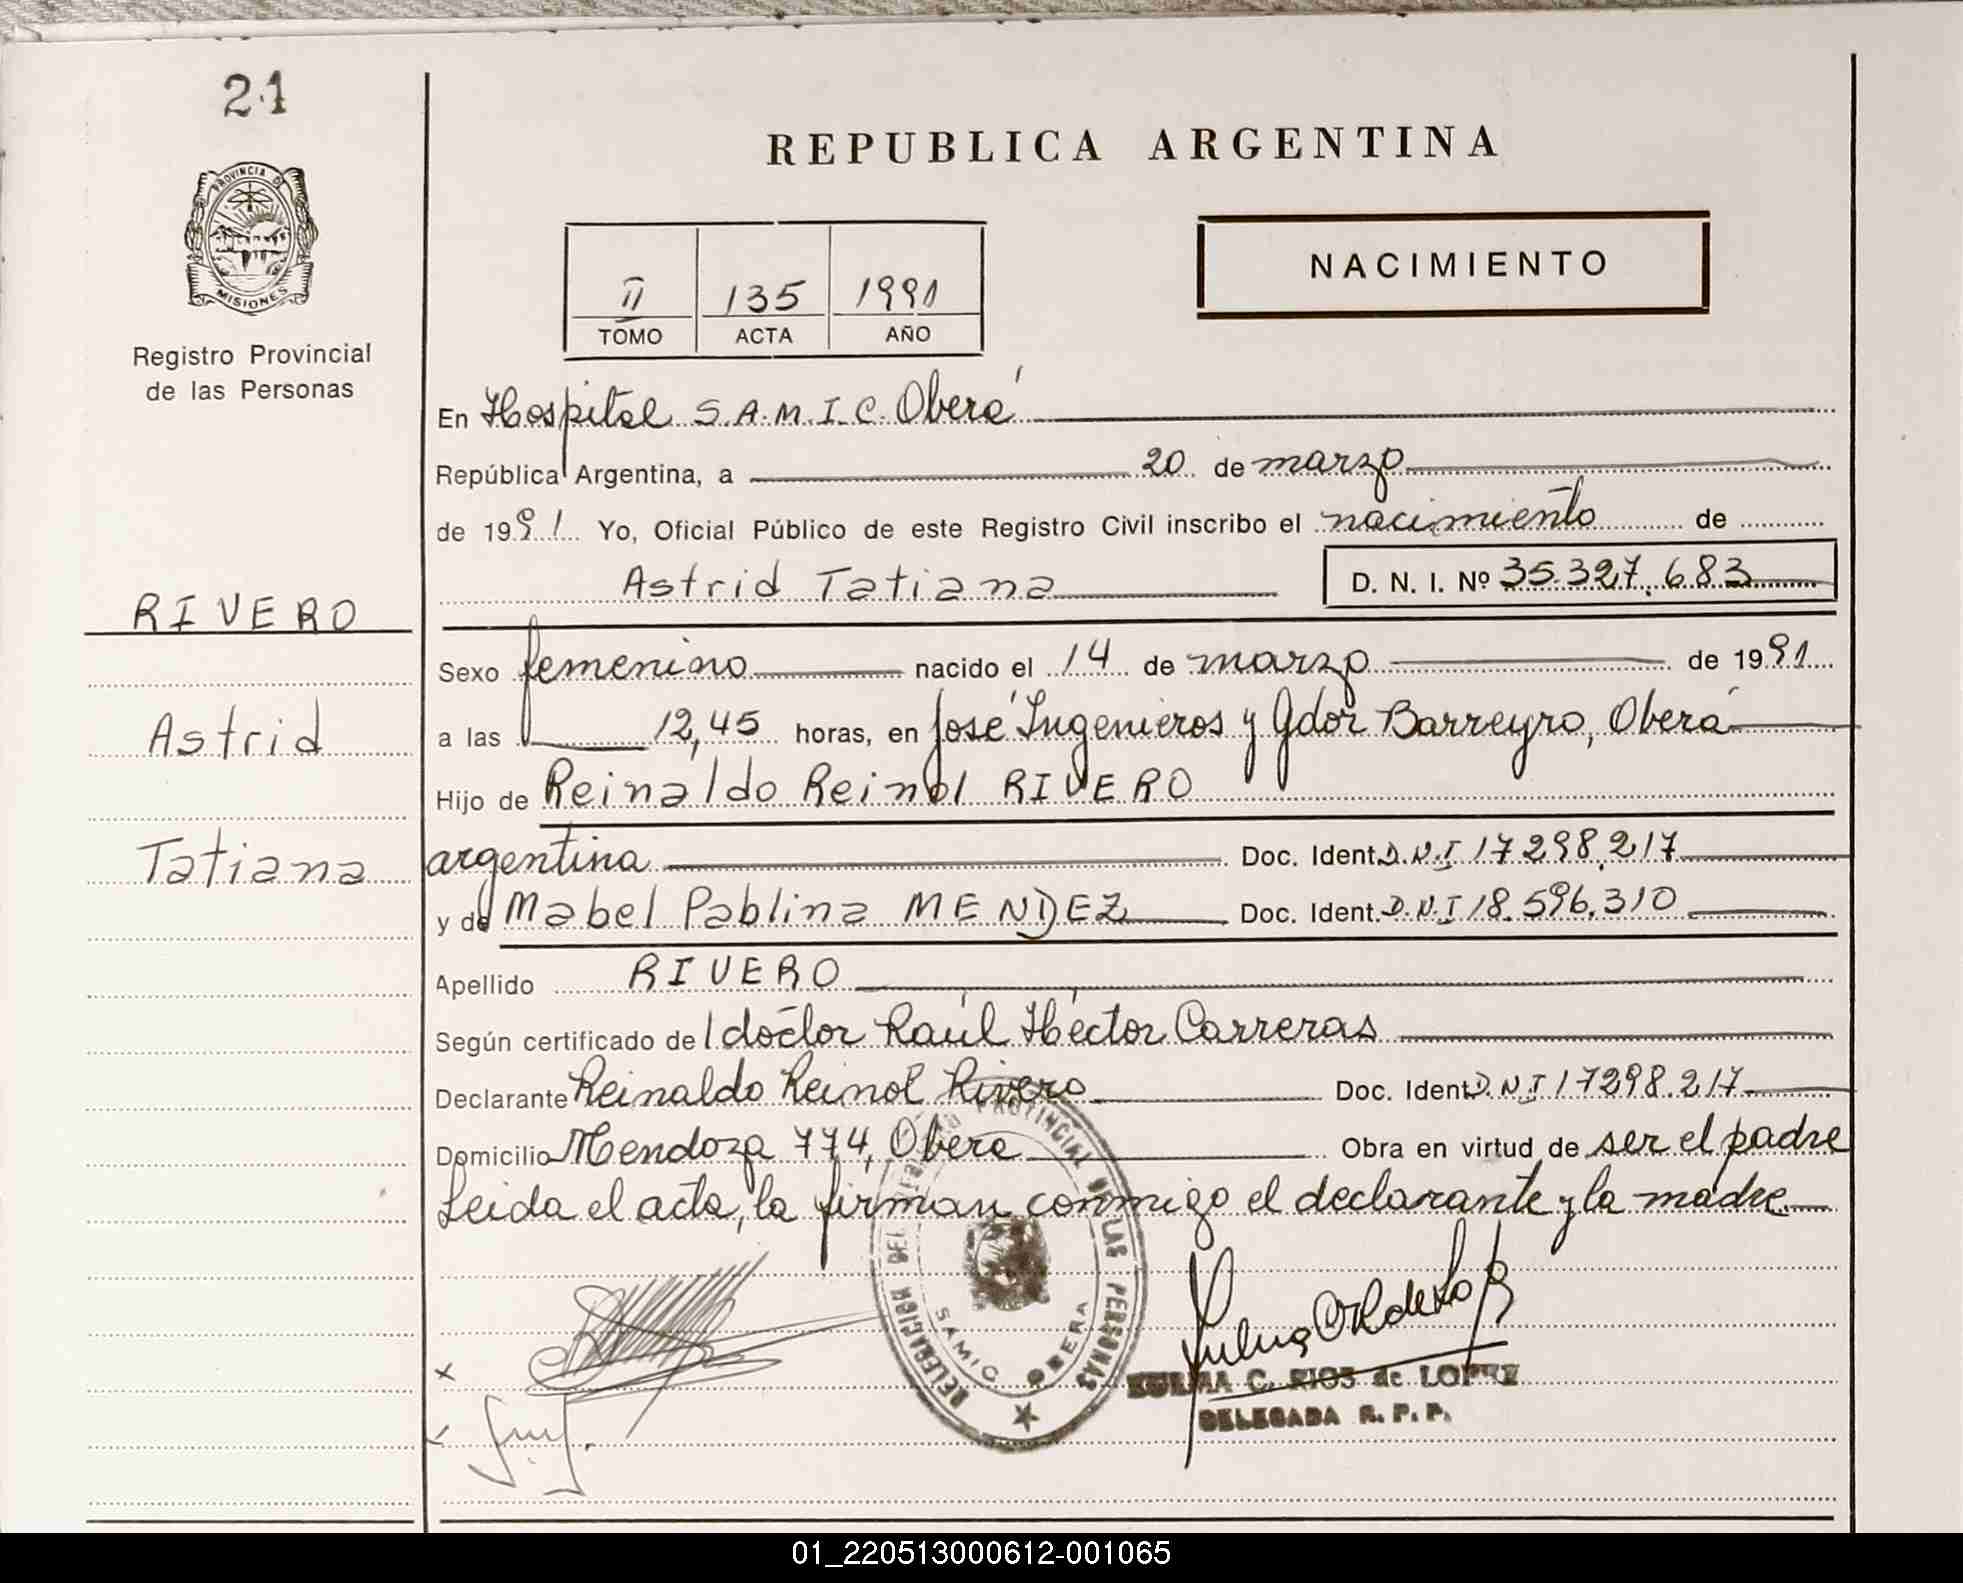 21
PROVINCIA DE
MISIONES
Registro Provincial
de las Personas
RIVERO
Astrid
Tatiana
REPUBLICA ARGENTINA
II 135 1991
TOMO ACTA AÑO
NACIMIENTO
En Hospital S.A.M.I.C. Oberá
República Argentina, a 20 de marzo
de 1991 Yo, Oficial Público de este Registro Civil inscribo el nacimiento de
Astrid Tatiana D. N. I. Nº 35.327.683
Sexo femenino nacido el 14 de marzo de 1991
a las 12,45 horas, en José Ingenieros y Gdor Barreyro, Oberá
Hijo de Reinaldo Reinol RIVERO
argentina Doc. Ident. D.N.I 17298.217
y de Mabel Pablina MENDEZ Doc. Ident. D.N.I 18.596.310
Apellido RIVERO
Según certificado de l doctor Raúl Héctor Carreras
Declarante Reinaldo Reinol Rivero Doc. Ident. D.N.I 17298.217
Domicilio Mendoza 774, Obera Obra en virtud de ser el padre
Leida el acta, la firman conmigo el declarante y la madre
DELEGACION DEL REGISTRO PROVINCIAL DE LAS PERSONAS
SAMIC OBERA
C. RIOS de LOPEZ
DELEGADA R. P. P.
01_220513000612-001065